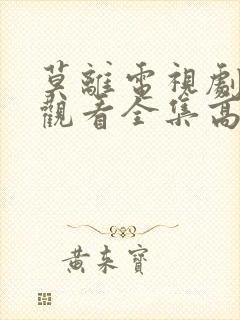 莫離電視劇
觀看全集高
黃東寶